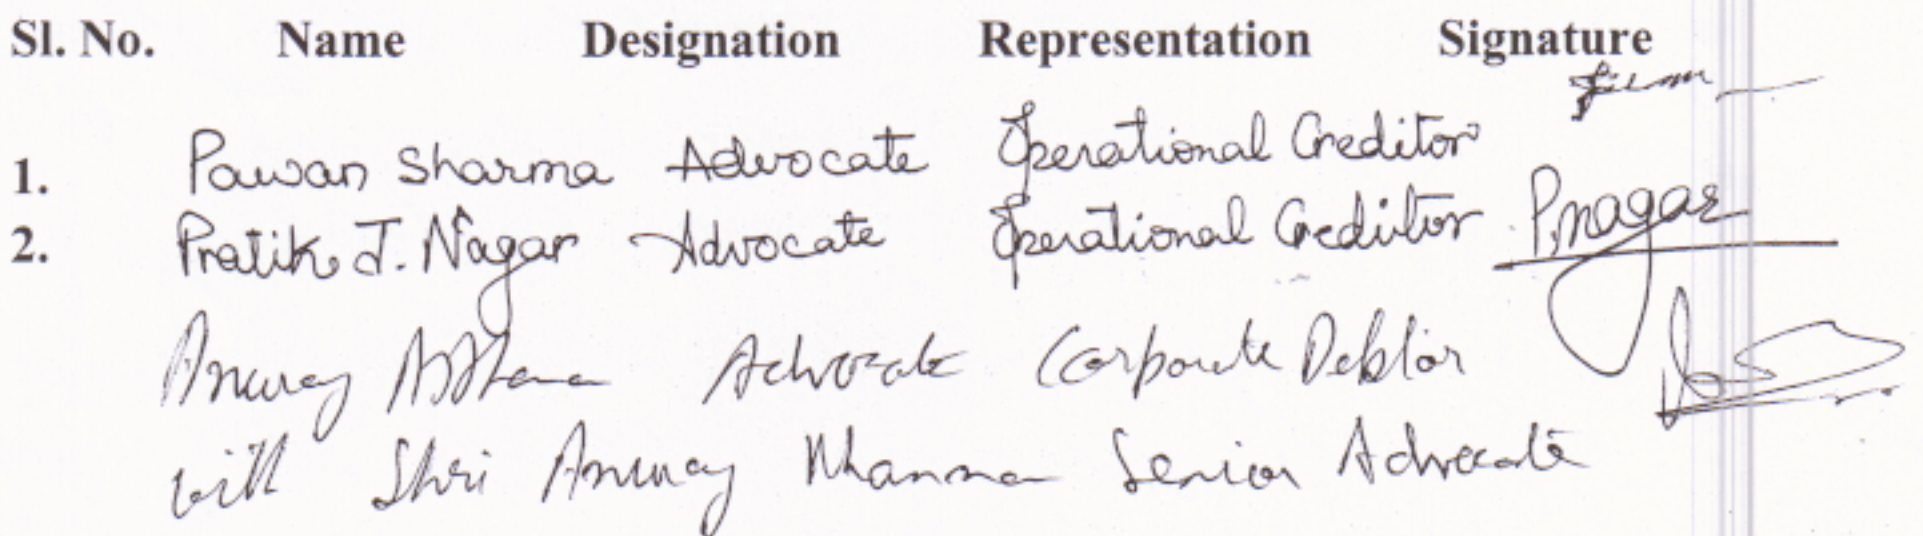 Sl. No. Name Designation Representation Signature
1. Pawan Sharma Advocate Operational Creditor
2. Pratik J. Nagar Advocate Operational Creditor P.nagar
Anurag Asthana Advocate Corporate Debtor
with Shri Anurag Khanna Senior Advocate